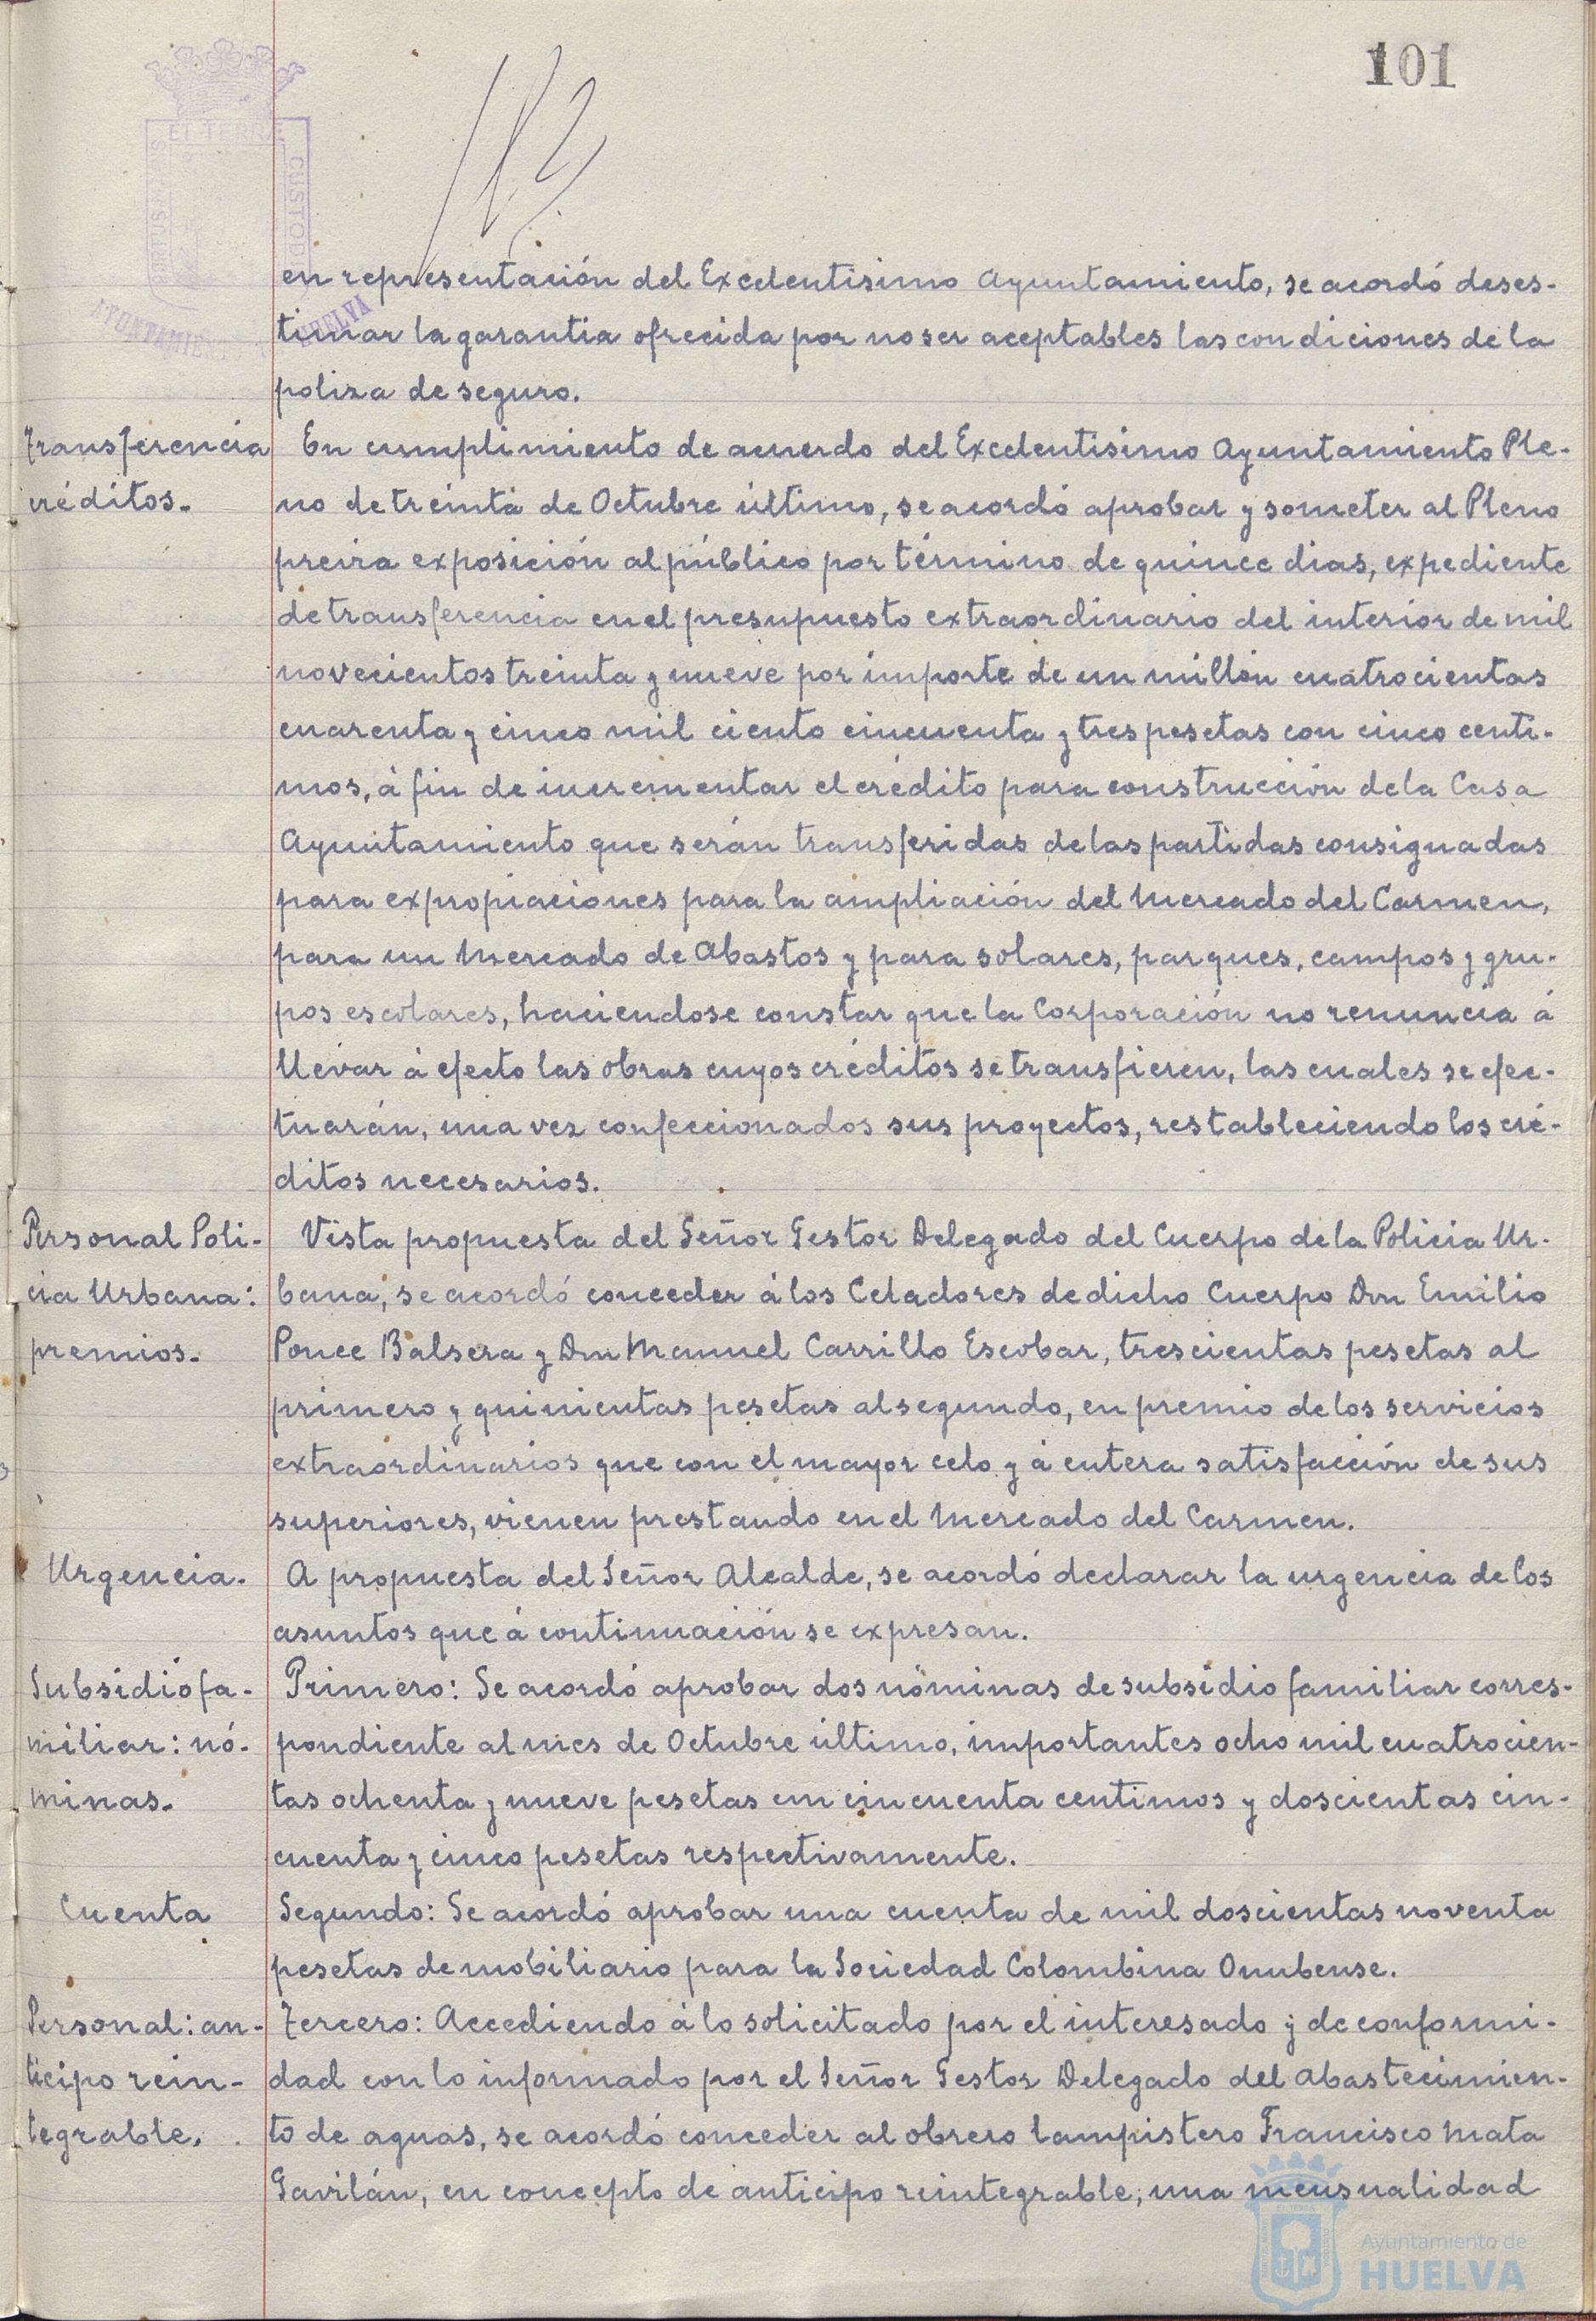 101
ET TERRE
PORTUS MARIS
CUSTODI
AYUNTAMIENTO
HUELVA
en representación del Excelentisimo Ayuntamiento, se acordó deses-
timar la garantia ofrecida por no ser aceptables las condiciones de la
poliza de seguro.
Transferencia
créditos.-
En cumplimiento de acuerdo del Excelentisimo Ayuntamiento Ple-
no de treinta de Octubre último, se acordó aprobar y someter al Pleno
previa exposición al público por término de quince dias, expediente
de transferencia en el presupuesto extraordinario del interior de mil
novecientos treinta y nueve por importe de un millón cuatrocientas
cuarenta y cinco mil ciento cincuenta y tres pesetas con cinco centi-
mos, á fin de incrementar el crédito para construcción de la Casa
Ayuntamiento que serán transferidas de las partidas consignadas
para expropiaciones para la ampliación del Mercado del Carmen,
para un Mercado de Abastos y para solares, parques, campos y gru-
pos escolares, haciendose constar que la Corporación no renuncia á
llevar á efecto las obras cuyos créditos se transfieren, las cuales se efec-
tuarán, una vez confeccionados sus proyectos, restableciendo los cré-
ditos necesarios.
Personal Poli-
cia Urbana:
premios.-
Vista propuesta del Señor Gestor Delegado del Cuerpo de la Policia Ur-
bana, se acordó conceder á los Celadores de dicho Cuerpo Don Emilio
Ponce Balsera y Don Manuel Carrillo Escobar, trescientas pesetas al
primero y quinientas pesetas al segundo, en premio de los servicios
extraordinarios que con el mayor celo y á entera satisfacción de sus
superiores, vienen prestando en el Mercado del Carmen.
Urgencia.-
A propuesta del Señor Alcalde, se acordó declarar la urgencia de los
asuntos que á continuación se expresan.
Subsidio fa-
miliar: nó-
minas.-
Primero: Se acordó aprobar dos nóminas de subsidio familiar corres-
pondiente al mes de Octubre último, importantes ocho mil cuatrocien-
tas ochenta y nueve pesetas con cincuenta centimos y doscientas cin-
cuenta y cinco pesetas respectivamente.
Cuenta
Segundo: Se acordó aprobar una cuenta de mil doscientas noventa
pesetas de mobiliario para la Sociedad Colombina Onubense.
Personal: an-
ticipo rein-
tegrable.
Tercero: Accediendo á lo solicitado por el interesado y de conformi-
dad con lo informado por el Señor Gestor Delegado del Abastecimien-
to de aguas, se acordó conceder al obrero lampistero Francisco Mata
Gavilán, en concepto de anticipo reintegrable, una mensualidad
Ayuntamiento de
HUELVA